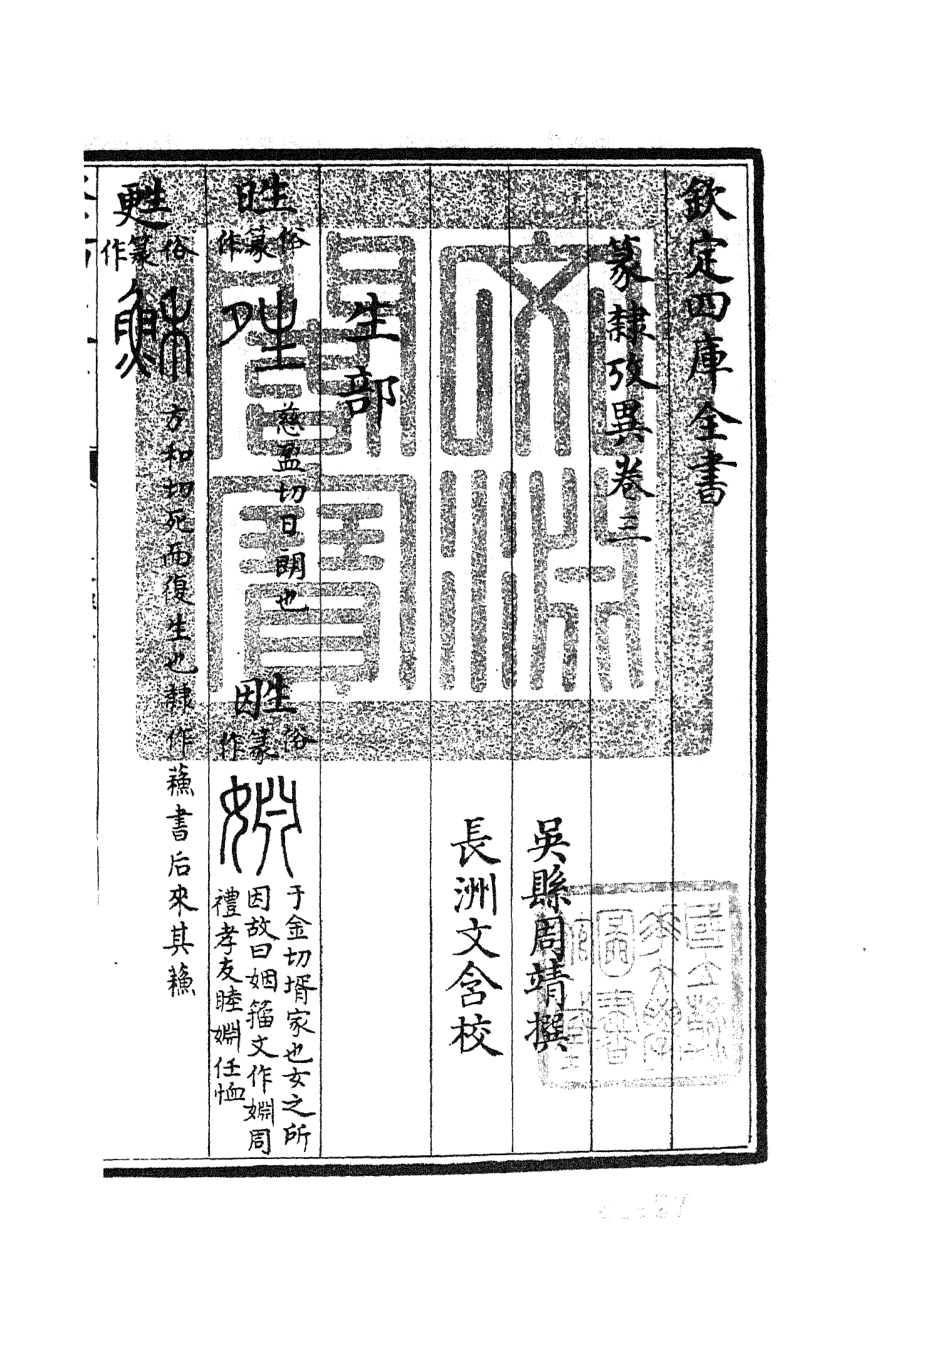 欽定四庫全書
篆隸攷異卷三
吳縣周靖撰
長洲文含校
生部
甠俗篆作夝慈盈切日朗也
俗篆作婣于金切壻家也女之所因故曰姻籀文作婣周禮孝友睦婣任恤
甦俗篆作穌方和切死而復生也隸作蘓書后來其蘓
文淵閣寶